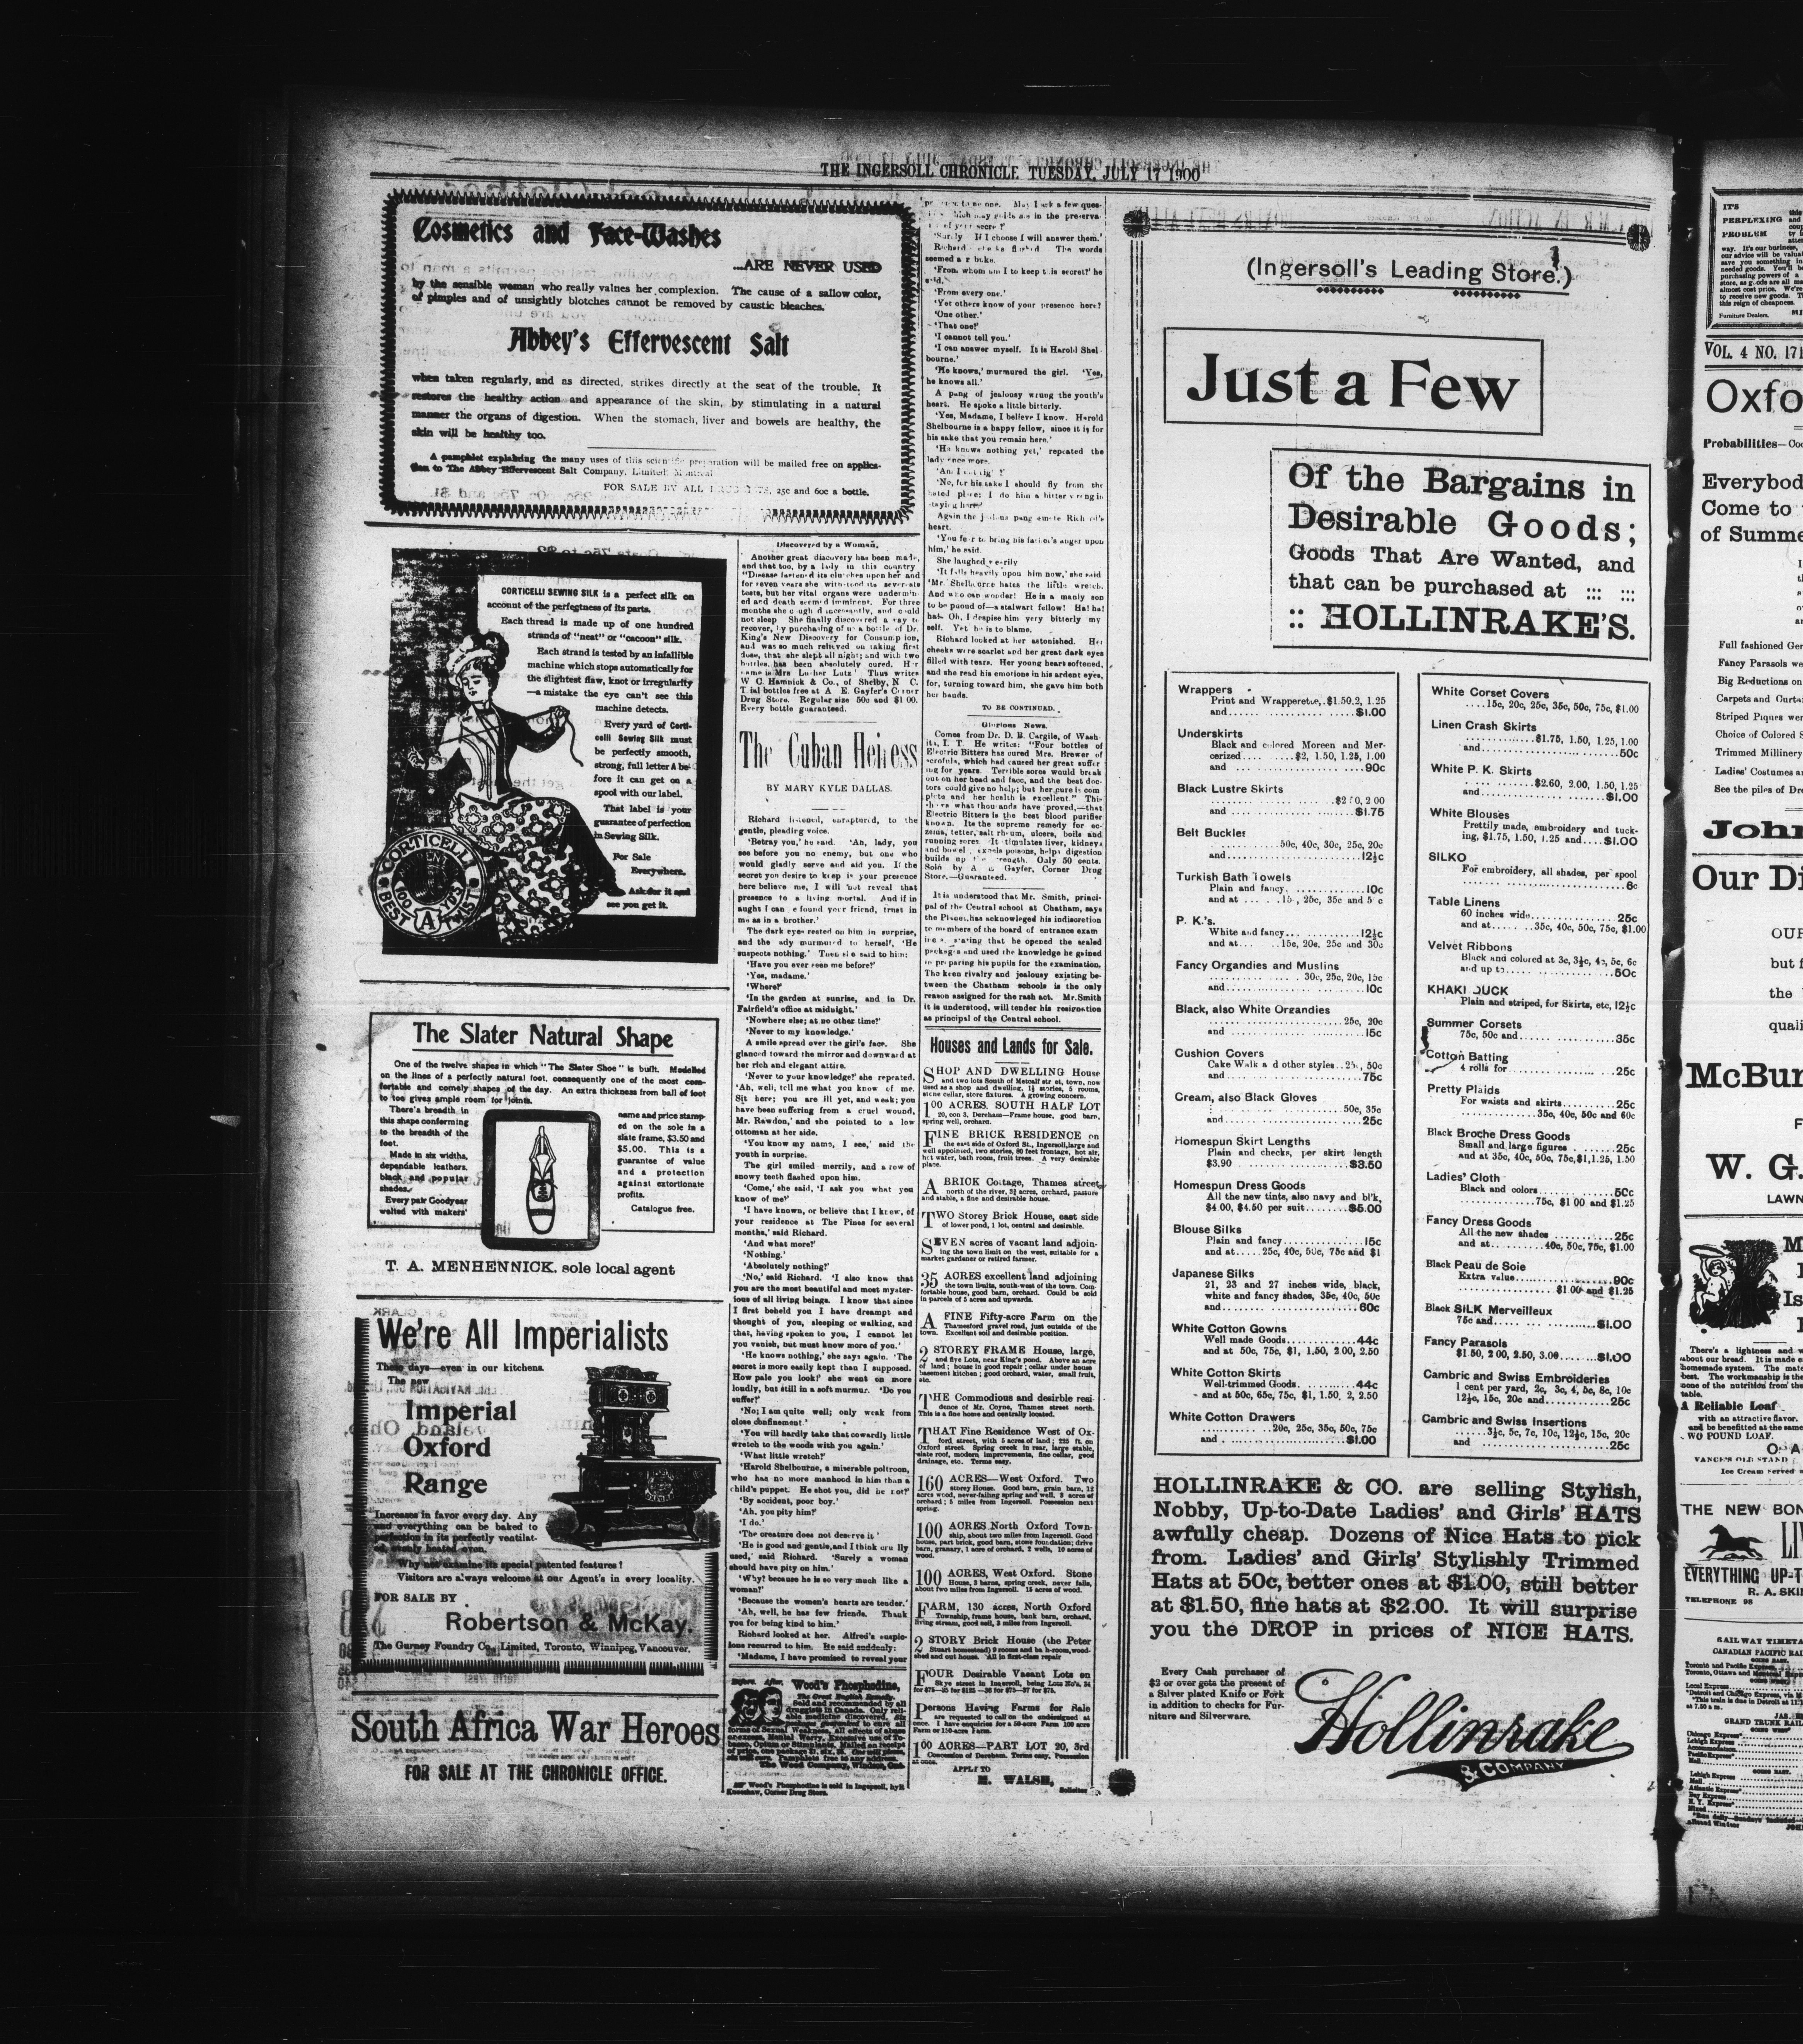 THE INGERSOLL CHRONICLE TUESDAY, JULY 17 1900
Cosmetics and Face-Washes
...ARE NEVER USED
by the sensible woman who really values her complexion. The cause of a sallow color,
of pimples and of unsightly blotches cannot be removed by caustic bleaches.
Abbey's Effervescent Salt
when taken regularly, and as directed, strikes directly at the seat of the trouble. It
restores the healthy action and appearance of the skin, by stimulating in a natural
manner the organs of digestion. When the stomach, liver and bowels are healthy, the
skin will be healthy too.
A pamphlet explaining the many uses of this scientific preparation will be mailed free on applica-
tion to The Abbey Effervescent Salt Company, Limited, Montreal
FOR SALE BY ALL DRUGGISTS, 25c and 60c a bottle.
CORTICELLI SEWING SILK is a perfect silk on
account of the perfectness of its parts.
Each thread is made up of one hundred
strands of "nest" or "cacoon" silk.
Each strand is tested by an infallible
machine which stops automatically for
the slightest flaw, knot or irregularity
—a mistake the eye can't see this
machine detects.
Every yard of Corti-
celli Sewing Silk must
be perfectly smooth,
strong, full letter A be-
fore it can get on a
spool with our label.
That label is your
guarantee of perfection
in Sewing Silk.
For Sale
Everywhere.
Ask for it and
see you get it.
CORTICELLI
100 YDS
BEST TWIST
A
The Slater Natural Shape
One of the twelve shapes in which "The Slater Shoe" is built. Modelled
on the lines of a perfectly natural foot, consequently one of the most com-
fortable and comely shapes of the day. An extra thickness from ball of foot
to toe gives ample room for joints.
There's breadth in
this shape conforming
to the breadth of the
foot.
Made in six widths,
dependable leathers,
black and popular
shades.
Every pair Goodyear
welted with makers'
name and price stamp-
ed on the sole in a
slate frame, $3.50 and
$5.00. This is a
guarantee of value
and a protection
against extortionate
profits.
Catalogue free.
T. A. MENHENNICK, sole local agent
We're All Imperialists
These days—even in our kitchens.
The new
Imperial
Oxford
Range
Increases in favor every day. Any
and everything can be baked to
perfection in its perfectly ventilat-
ed, evenly heated oven.
Why not examine its special patented features?
Visitors are always welcome at our Agent's in every locality.
FOR SALE BY
Robertson & McKay.
The Gurney Foundry Co., Limited, Toronto, Winnipeg, Vancouver.
South Africa War Heroes
FOR SALE AT THE CHRONICLE OFFICE.
Discovered by a Woman.
Another great discovery has been made,
and that too, by a lady in this country
"Disease fastened its clutches upon her and
for seven years she withstood its severests
tests, but her vital organs were undermin-
ed and death seemed imminent. For three
months she coughed incessantly, and could
not sleep She finally discovered a way to
recover, by purchasing of us a bottle of Dr.
King's New Discovery for Consumption,
and was so much relieved on taking first
dose, that she slept all night; and with two
bottles, has been absolutely cured. Her
name is Mrs Luther Lutz' Thus writes
W C. Hamnick & Co., of Shelby, N C.
Trial bottles free at A E. Gayfer's Corner
Drug Store. Regular size 50c and $1 00.
Every bottle guaranteed.
The Cuban Heiress
BY MARY KYLE DALLAS.
Richard listened, enraptured, to the
gentle, pleading voice.
'Betray you,' he said. 'Ah, lady, you
see before you no enemy, but one who
would gladly serve and aid you. If the
secret you desire to keep is your presence
here believe me, I will not reveal that
presence to a living mortal. And if in
aught I can e found your friend, trust in
me as in a brother.'
The dark eyes rested on him in surprise,
and the ady murmured to herself, 'He
suspects nothing.' Then she said to him:
'Have you ever seen me before?'
'Yes, madame.'
'Where?'
'In the garden at sunrise, and in Dr.
Fairfield's office at midnight.'
'Nowhere else; at no other time?'
'Never to my knowledge.'
A smile spread over the girl's face. She
glanced toward the mirror and downward at
her rich and elegant attire.
'Never to your knowledge?' she repeated.
'Ah, well, tell me what you know of me.
Sit here; you are ill yet, and weak; you
have been suffering from a cruel wound,
Mr. Rawdon,' and she pointed to a low
ottoman at her side.
'You know my name, I see,' said the
youth in surprise.
The girl smiled merrily, and a row of
snowy teeth flashed upon him.
'Come,' she said, 'I ask you what you
know of me?'
'I have known, or believe that I knew, of
your residence at The Pines for several
months,' said Richard.
'And what more?'
'Nothing.'
'Absolutely nothing?'
'No,' said Richard. 'I also know that
you are the most beautiful and most myster-
ious of all living beings. I know that since
I first beheld you I have dreampt and
thought of you, sleeping or walking, and
that, having spoken to you, I cannot let
you vanish, but must know more of you.'
'He knows nothing,' she says again. 'The
secret is more easily kept than I supposed.
How pale you look!' she went on more
loudly, but still in a soft murmur. 'Do you
suffer?'
'No; I am quite well; only weak from
close confinement.'
'You will hardly take that cowardly little
wretch to the woods with you again.'
'What little wretch?'
'Harold Shelbourne, a miserable poltroon,
who has no more manhood in him than a
child's puppet. He shot you, did he not?'
'By accident, poor boy.'
'Ah, you pity him?'
'I do.'
'The creature does not deserve it'
'He is good and gentle, and I think cru lly
used,' said Richard. 'Surely a woman
should have pity on him.'
'Why? because he is so very much like a
woman?'
'Because the women's hearts are tender.'
'Ah, well, he has few friends. Thank
you for being kind to him.'
Richard looked at her. Alfred's suspic-
ions recurred to him. He said suddenly:
'Madame, I have promised to reveal your
Before. After. Wood's Phosphodine,
The Great English Remedy.
Sold and recommended by all
druggists in Canada. Only reli-
able medicine discovered. Six
packages guaranteed to cure all
forms of Sexual Weakness, all effects of abuse
or excess, Mental Worry, Excessive use of To-
bacco, Opium or Stimulants. Mailed on receipt
of price, one package $1, six, $5. One will please,
six will cure. Pamphlets free to any address.
The Wood Company, Windsor, Ont.
Wood's Phosphodine is sold in Ingersoll, by
Kneeshaw, Corner Drug Store.
presence to no one. May I ask a few ques-
tions which may guide me in the preserva-
tion of your secret?'
'Surely If I choose I will answer them.'
Richard flushed The words
seemed a r buke.
'From whom am I to keep t is secret?' he
said.
'From every one.'
'Yet others know of your presence here?
'One other.'
'That one?'
'I cannot tell you.'
'I can answer myself. It is Harold Shel
bourne.'
'He knows,' murmured the girl. 'Yes,
he knows all.'
A pang of jealousy wrung the youth's
heart. He spoke a little bitterly.
'Yes, Madame, I believe I know. Harold
Shelbourne is a happy fellow, since it is for
his sake that you remain here.'
'He knows nothing yet,' repeated the
lady once more.
'Am I not right?'
'No, for his sake I should fly from the
hated place; I do him a bitter wrong in
staying here?'
Again the jealous pang smote Richard's
heart.
'You fear to bring his father's anger upon
him,' he said.
She laughed wearily
'It falls heavily upon him now,' she said
'Mr. Shelbourne hates the little wretch.
And who can wonder! He is a manly son
to be puoud of—a stalwart fellow! Ha! ha!
ha! Oh, I despise him very bitterly my
self. Yet he is to blame.
Richard looked at her astonished. Her
cheeks were scarlet and her great dark eyes
filled with tears. Her young heart softened,
and she read his emotions in his ardent eyes,
for, turning toward him, she gave him both
her hands.
TO BE CONTINUED.
Glorious News.
Comes from Dr. D. B. Cargile, of Wash-
ita, I. T. He writes: "Four bottles of
Electric Bitters has cured Mrs. Brewer of
scrofula, which had caused her great suffer
ing for years. Terrible sores would break
out on her head and face, and the best doc-
tors could give no help; but her pure is com
plete and her health is excellent." This
shows what thousands have proved,—that
Electric Bitters is the best blood purifier
known. Its the supreme remedy for ec-
zema, tetter, salt rheum, ulcers, boils and
running sores. It stimulates liver, kidneys
and bowels, expels poisons, helps digestion
builds up the strength. Only 50 cents.
Sold by A E Gayfer, Corner Drug
Store.—Guaranteed.
It is understood that Mr. Smith, princi-
pal of the Central school at Chatham, says
the Planet, has acknowleged his indiscretion
to members of the board of entrance exam
iners, stating that he opened the sealed
packages and used the knowledge he gained
in preparing his pupils for the examination.
The keen rivalry and jealousy existing be-
tween the Chatham schools is the only
reason assigned for the rash act. Mr. Smith
it is understood, will tender his resignation
as principal of the Central school.
Houses and Lands for Sale.
SHOP AND DWELLING House
and two lots South of Metcalf str et, town, now
used as a shop and dwelling, 1½ stories, 5 rooms,
stone cellar, store fixtures. A growing concern.
100 ACRES, SOUTH HALF LOT
20, con 3, Dereham—Frame house, good barn,
spring well, orchard.
FINE BRICK RESIDENCE on
the east side of Oxford St., Ingersoll, large and
well appointed, two stories, 80 feet frontage, hot air,
hot water, bath room, fruit trees. A very desirable
place.
A BRICK Cottage, Thames street,
north of the river, 3½ acres, orchard, pasture
and stable, a fine and desirable house.
TWO Storey Brick House, east side
of lower pond, 1 lot, central and desirable.
SEVEN acres of vacant land adjoin-
ing the town limit on the west, suitable for a
market gardener or retired farmer.
35 ACRES excellent land adjoining
the town limits, south-west of the town. Com-
fortable house, good barn, orchard. Could be sold
in parcels of 5 acres and upwards.
A FINE Fifty-acre Farm on the
Thamesford gravel road, just outside of the
town. Excellent soil and desirable position.
2 STOREY FRAME House, large,
and five Lots, near King's pond. Above an acre
of land; house in good repair; cellar under house
basement kitchen; good orchard, water, small fruit,
etc.
THE Commodious and desirble resi-
dence of Mr. Coyne, Thames street north.
This is a fine home and centrally located.
THAT Fine Residence West of Ox-
ford street, with 5 acres of land; 225 ft. on
Oxford street. Spring creek in rear, large stable,
slate roof, modern improvements, fine cellar, good
drainage, etc. Terms easy.
160 ACRES—West Oxford. Two
storey House. Good barn, grain barn, 12
acres wood, never-failing spring and well, 3 acres of
orchard; 5 miles from Ingersoll. Possession next
spring.
100 ACRES North Oxford Town-
ship, about two miles from Ingersoll. Good
house, part brick, good barn, stone foundation; drive
barn, granary, 1 acre of orchard, 2 wells, 10 acres of
wood.
100 ACRES, West Oxford. Stone
House, 3 barns, spring creek, never fails,
about two miles from Ingersoll. 15 acres of wood.
FARM, 130 acres, North Oxford
Township, frame house, bank barn, orchard,
living stream, good soil, 3 miles from Ingersoll.
2 STORY Brick House (the Peter
Stuart homestead) 9 rooms and ba h-room, wood-
shed and out house. All in first-class repair
FOUR Desirable Vacant Lots on
Skye street in Ingersoll, being Lots No's, 34
for $75—35 for $125—36 for $75—37 for $75.
Persons Having Farms for Sale
are requested to call on the undesigned at
once. I have enquiries for a 50-acre Farm 100 acre
Farm or 150-acre Farm.
100 ACRES—PART LOT 20, 3rd
Concession of Dereham. Terms easy, Possession
at once.
APPLY TO
M. WALSH,
Solicitor
(Ingersoll's Leading Store.)
Just a Few
Of the Bargains in
Desirable Goods;
Goods That Are Wanted, and
that can be purchased at ::: :::
:: HOLLINRAKE'S.
Wrappers
Print and Wrapperette, $1.50, 2, 1.25
and $1.00
Underskirts
Black and colored Moreen and Mer-
cerized $2, 1.50, 1.25, 1.00
and 90c
Black Lustre Skirts
$2 50, 2 00
and $1.75
Belt Buckler
50c, 40c, 30c, 25c, 20c
and 12½c
Turkish Bath Towels
Plain and fancy 10c
and at 15, 25c, 35c and 5 c
P. K.'s.
White and fancy 12½c
and at 15c, 20c, 25c and 30c
Fancy Organdies and Muslins
30c, 25c, 20c, 15c
and 10c
Black, also White Organdies
25c, 20c
and 15c
Cushion Covers
Cake Walk a d other styles 25, 50c
and 75c
Cream, also Black Gloves
50c, 35c
and 25c
Homespun Skirt Lengths
Plain and checks, per skirt length
$3.90 $3.50
Homespun Dress Goods
All the new tints, also navy and bl'k,
$4 00, $4.50 per suit $5.00
Blouse Silks
Plain and fancy 15c
and at 25c, 40c, 50c, 75c and $1
Japanese Silks
21, 23 and 27 inches wide, black,
white and fancy shades, 35c, 40c, 50c
and 60c
White Cotton Gowns
Well made Goods 44c
and at 50c, 75c, $1, 1.50, 2.00, 2.50
White Cotton Skirts
Well-trimmed Goods 44c
and at 50c, 65c, 75c, $1, 1.50, 2, 2.50
White Cotton Drawers
20c, 25c, 35c, 50c, 75c
and $1.00
White Corset Covers
15c, 20c, 25c, 35c, 50c, 75c, $1.00
Linen Crash Skirts
$1.75, 1.50, 1.25, 1.00
and 50c
White P. K. Skirts
$2.60, 2.00, 1.50, 1.25
and $1.00
White Blouses
Prettily made, embroidery and tuck-
ing, $1.75, 1.50, 1.25 and $1.00
SILKO
For embroidery, all shades, per spool
6c
Table Linens
60 inches wide 25c
and at 35c, 40c, 50c, 75c, $1.00
Velvet Ribbons
Black and colored at 3c, 3½c, 4c, 5c, 6c
and up to 50c
KHAKI DUCK
Plain and striped, for Skirts, etc, 12½c
Summer Corsets
75c, 50c and 35c
Cotton Batting
4 rolls for 25c
Pretty Plaids
For waists and skirts 25c
35c, 40c, 50c and 60c
Black Broche Dress Goods
Small and large figures 25c
and at 35c, 40c, 50c, 75c, $1, 1.25, 1.50
Ladies' Cloth
Black and colors 50c
75c, $1 00 and $1.25
Fancy Dress Goods
All the new shades 25c
and at 40c, 50c, 75c, $1.00
Black Peau de Soie
Extra value 90c
$1.00 and $1.25
Black SILK Merveilleux
75c and $1.00
Fancy Parasols
$1.50, 2 00, 2.50, 3.00 $1.00
Cambric and Swiss Embroideries
1 cent per yard, 2c, 3c, 4, 5c, 8c, 10c
12½c, 15c, 20c and 25c
Cambric and Swiss Insertions
3½c, 5c, 7c, 10c, 12½c, 15c, 20c
and 25c
HOLLINRAKE & CO. are selling Stylish,
Nobby, Up-to-Date Ladies' and Girls' HATS
awfully cheap. Dozens of Nice Hats to pick
from. Ladies' and Girls' Stylishly Trimmed
Hats at 50c, better ones at $1.00, still better
at $1.50, fine hats at $2.00. It will surprise
you the DROP in prices of NICE HATS.
Every Cash purchaser of
$2 or over gets the present of
a Silver plated Knife or Fork
in addition to checks for Fur-
niture and Silverware.
Hollinrake
& COMPANY
IT'S
PERPLEXING
PROBLEM
way. It's our business,
our advice will be valua
save you something in
needed goods. You'll b
purchasing powers of a
store, as g ods are all ma
almost cost price. We're
to receive new goods. T
this reign of cheapness.
Furniture Dealers.
VOL. 4 NO. 171
Oxfo
Probabilities—Coo
Everybod
Come to
of Summe
Full fashioned Ger
Fancy Parasols we
Big Reductions on
Carpets and Curta
Striped Piques wer
Choice of Colored S
Trimmed Millinery
Ladies' Costumes a
See the piles of Dre
John
Our Di
OUR
but f
the
quali
McBur
W. G.
LAWN
There's a lightness and w
about our bread. It is made o
homemade system. The mate
best. The workmanship is the
none of the nutrition from the
table.
A Reliable Loaf
with an attractive flavor.
and be benefitted at the same
WO POUND LOAF.
VANCE'S OLD STAND
Ice Cream served
THE NEW BON
LIV
EVERYTHING UP-T
R. A. SKI
TELEPHONE 98
RAILWAY TIMETA
CANADIAN PACIFIC RAI
GOING EAST.
Toronto and Pacific Express
Toronto, Ottawa and Montreal Exp
Local Express
*Detroit and Chicago Express, via M
*This train is due in Detroit at 11
at 7.50 a m.
GRAND TRUNK RAIL
GOING WEST
Chicago Express
Lehigh Express
Accommodation
Pacific Express
Mail
GOING EAST.
Lehigh Express
Mail
Atlantic Express
Day Express
N. Y. Express
Mixed